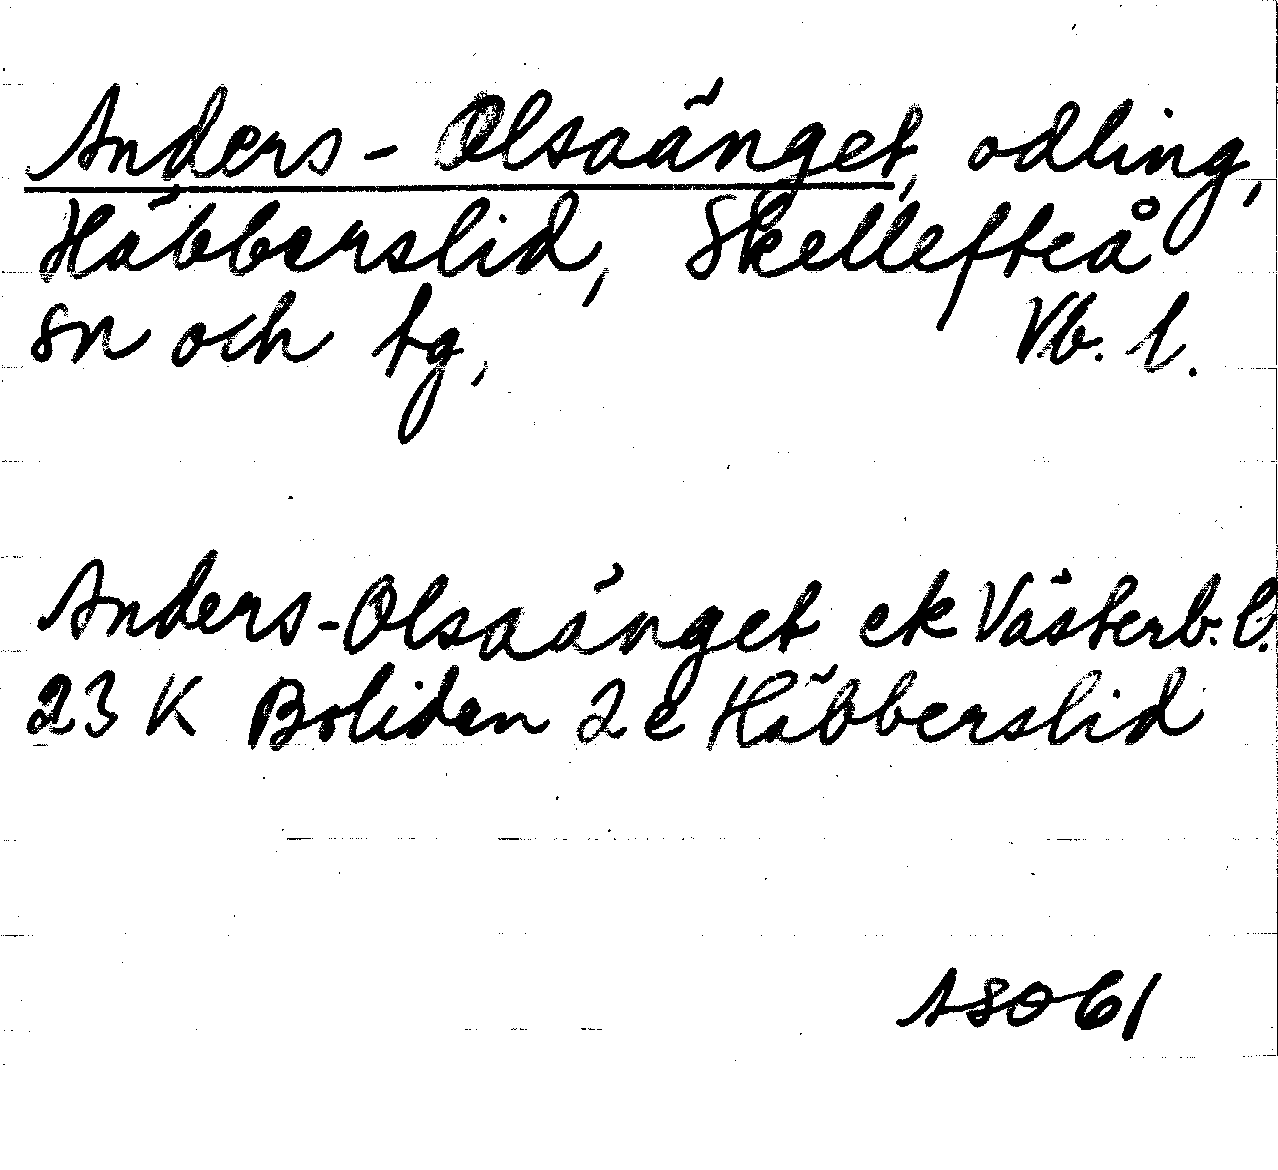 Anders-Olsaänget, odling,
Häbberslid, Skellefteå
sn och tg, Vb. l.
Anders-Olsaänget ek Västerb. l.
23 K Boliden 2 e Häbberslid
ASO 61